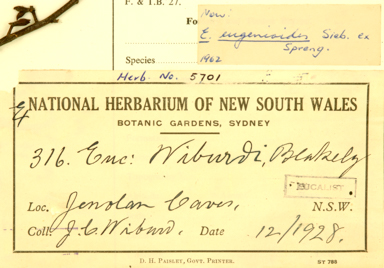 F. & T.B. 27.
Now:
E. eugenioides Sieb. ex
Spreng.
Fo
Species
1962
Herb. No. 5701
NATIONAL HERBARIUM OF NEW SOUTH WALES
BOTANIC GARDENS, SYDNEY
316. Euc: Wiburdi, Blakely
Loc. Jenolan Caves, N.S.W.
Coll. J.C. Wiburd. Date 12/1928.
D. H. PAISLEY, GOVT. PRINTER.
SY 788